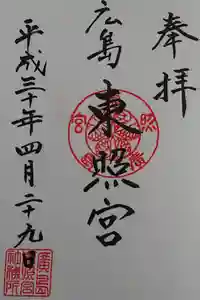 奉拝
広島東照宮
平成三十年四月二十九日
廣島
東照宮
社務所